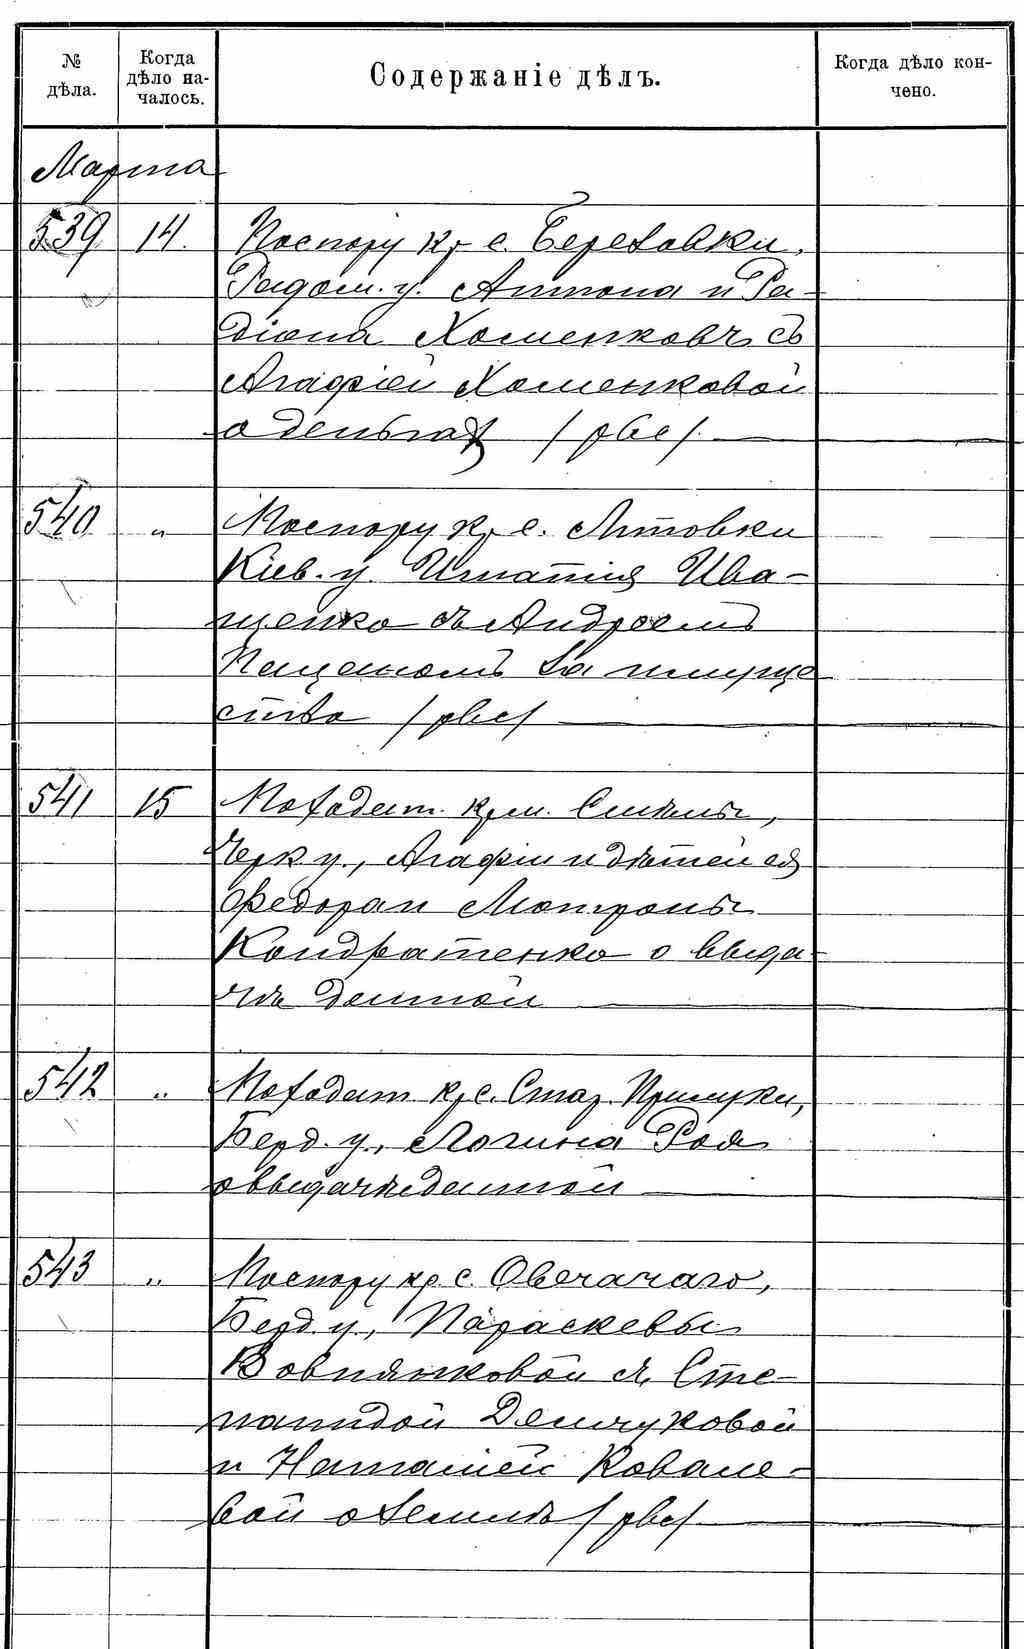 № дѣла.
Когда дѣло на-чалось.
Содержаніе дѣлъ.
Когда дѣло кон-чено.
Марта
539 14. По спору кр. с. Березовки,
Радом. у. Антона и Ра-
діона Хоменковъ съ
Агафіей Хоменковой
о деньгах /рвс/.
540 " По спору кр. с. Лютовки
Кіев. у. Игнатія Ива-
щенко съ Андреемъ
Пацаномъ за имуще
ство /рвс/
541 15 По ходат. кр. м. Смѣлы,
Черк у., Агафіи и дѣтей ея
Федора и Мотроны
Кондратенко о выда-
чѣ данной
542 " По ходат кр. с. Стар. Прилуки,
Берд. у., Логина Роя
о выдачѣ данной
543 " По спору кр. с. Овечачаго,
Берд. у., Параскевы
Вовнянковой съ Сте-
панидой Демчуковой
и Наталіей Ковале-
вой о землѣ /рвс/